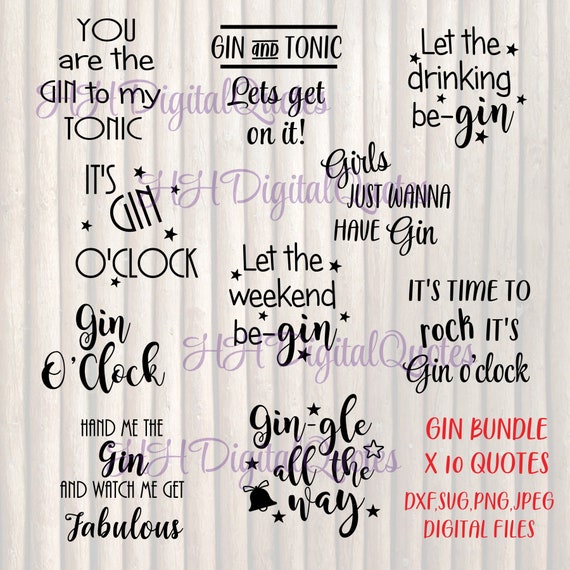 YOU
are the
GIN to my
TONIC
GIN and TONIC
Lets get
on it!
Let the
drinking
be-gin
HH DigitalQuotes
IT'S
GIN
O'CLOCK
Girls
JUST WANNA
HAVE Gin
HH DigitalQuotes
Let the
weekend
be-gin
IT'S TIME TO
rock IT'S
Gin o'clock
Gin
O'Clock
HH DigitalQuotes
HAND ME THE
Gin
AND WATCH ME GET
Fabulous
Gin-gle
all the
way
HH DigitalQuotes
GIN BUNDLE
X 10 QUOTES
DXF,SVG,PNG,JPEG
DIGITAL FILES